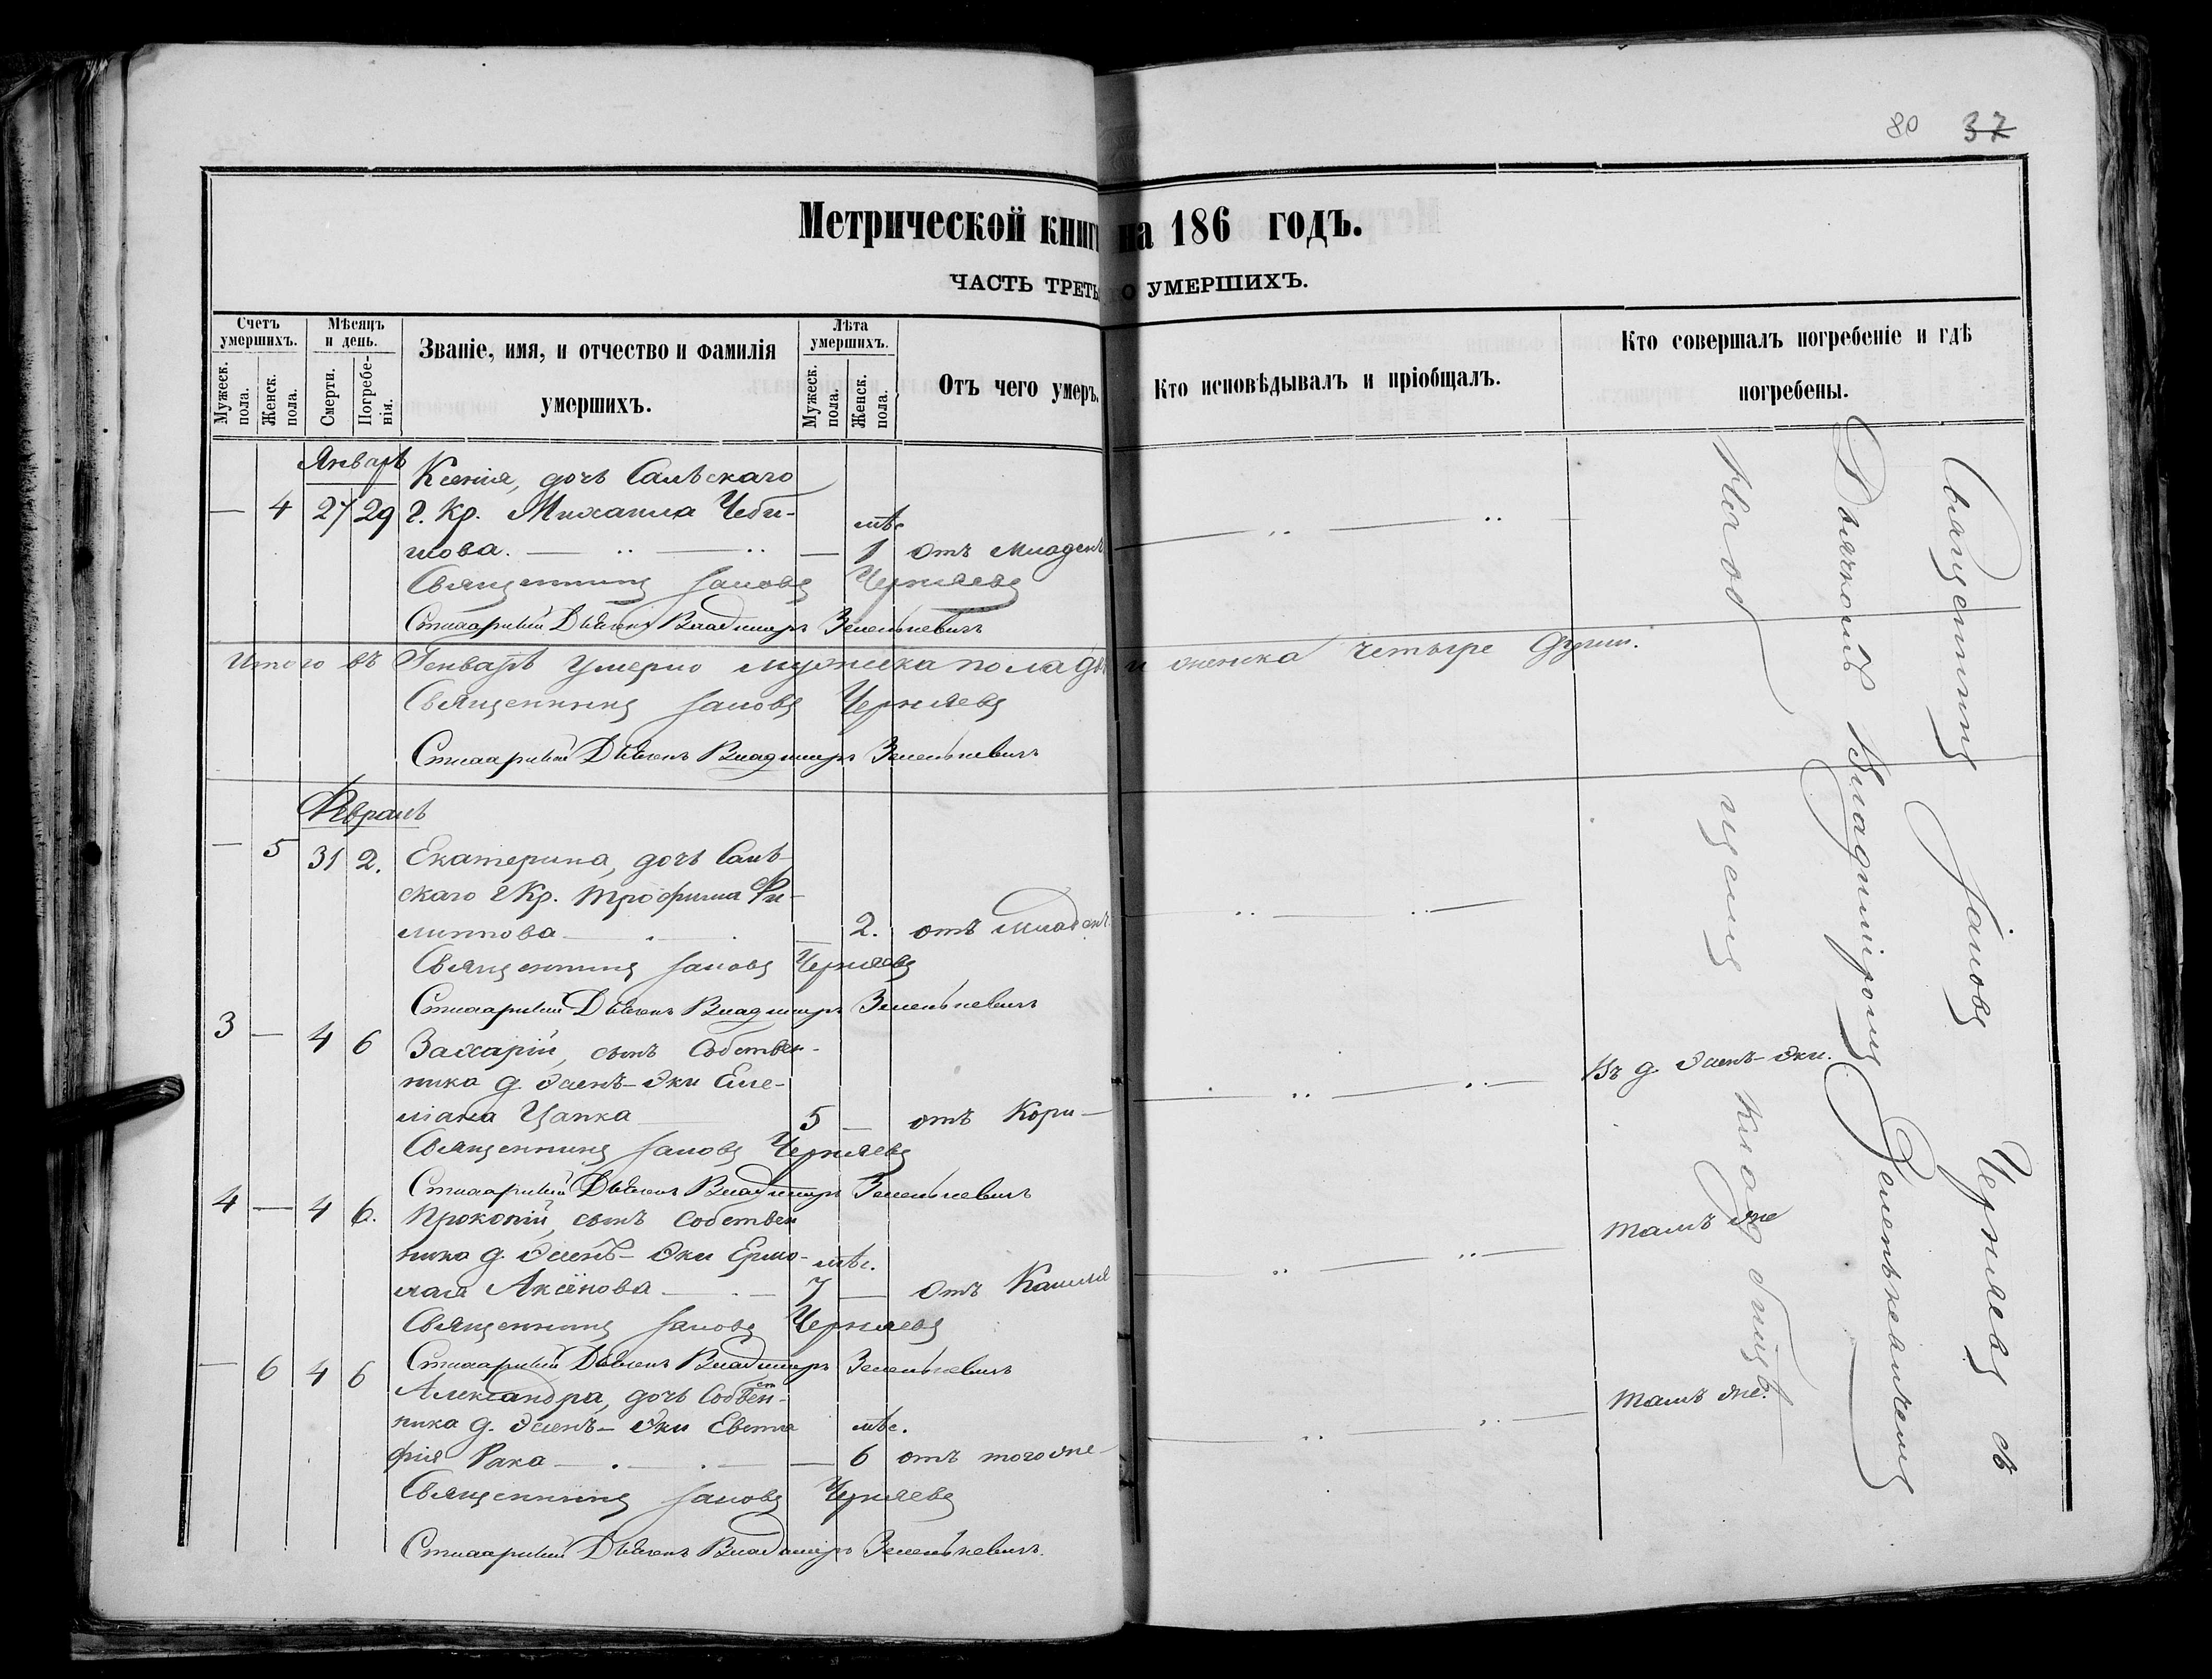 80 37
Метрической книг на 186 годъ.
ЧАСТЬ ТРЕТЬ О УМЕРШИХЪ.
Счетъ умершихъ.
Мужеск. пола.
Женск. пола.
Мѣсяцъ и день.
Смерти.
Погребенія.
Званіе, имя, и отчество и фамилія
умершихъ.
Лѣта умершихъ.
Мужеск. пола.
Женск. пола.
Отъ чего умеръ.
Кто исповѣдывалъ и пріобщалъ.
Кто совершалъ погребеніе и гдѣ
погребены.
Январь
Ксенія, дочь Сальскаго
— 4 27 29 г. Кр. Михаила Чеби-
мѣс
кова. — — — 1 отъ младен
Священникъ Іаковъ Черняевъ
Стихарный Дьячекъ Владимиръ Зеленькевичъ
Итого въ Генварѣ умерло мужеска пола дв и женска четыре души.
Священникъ Іаковъ Черняевъ
Стихарный Дьячекъ Владимиръ Зеленькевичъ
Февраль
— 5 31 2. Екатерина, дочь Саль-
скаго г Кр. Трофима Фи-
липпова — — 2. отъ младен.
Священникъ Іаковъ Черняевъ
Стихарный Дьячекъ Владимиръ Зеленькевичъ
3 — 4 6 Захарій, сынъ Собствен-
ника д. Эленъ-Эки Еме-
ліана Цапка — 5 — отъ Кори —
Въ д. Эленъ-Эки.
Священникъ Іаковъ Черняевъ
Стихарный Дьячекъ Владимиръ Зеленькевичъ
4 — 4 6. Прокопій, сынъ Собствен
ника д. Эленъ-Эки Ермо- мѣс.
лая Аксёнова — 7 — отъ Кашля
тамъ же
Священникъ Іаковъ Черняевъ
Стихарный Дьячекъ Владимиръ Зеленькевичъ
— 6 4 6 Александра, дочь Собствен-
ника д. Эленъ-Эки Евста мѣс.
фія Рака — — 6 отъ того же
тамъ же.
Священникъ Іаковъ Черняевъ
Стихарный Дьячекъ Владимиръ Зеленькевичъ.
Священникъ Іаковъ Черняевъ съ
Дьячкомъ Владиміромъ Зеленькевичемъ
кладбищѣ